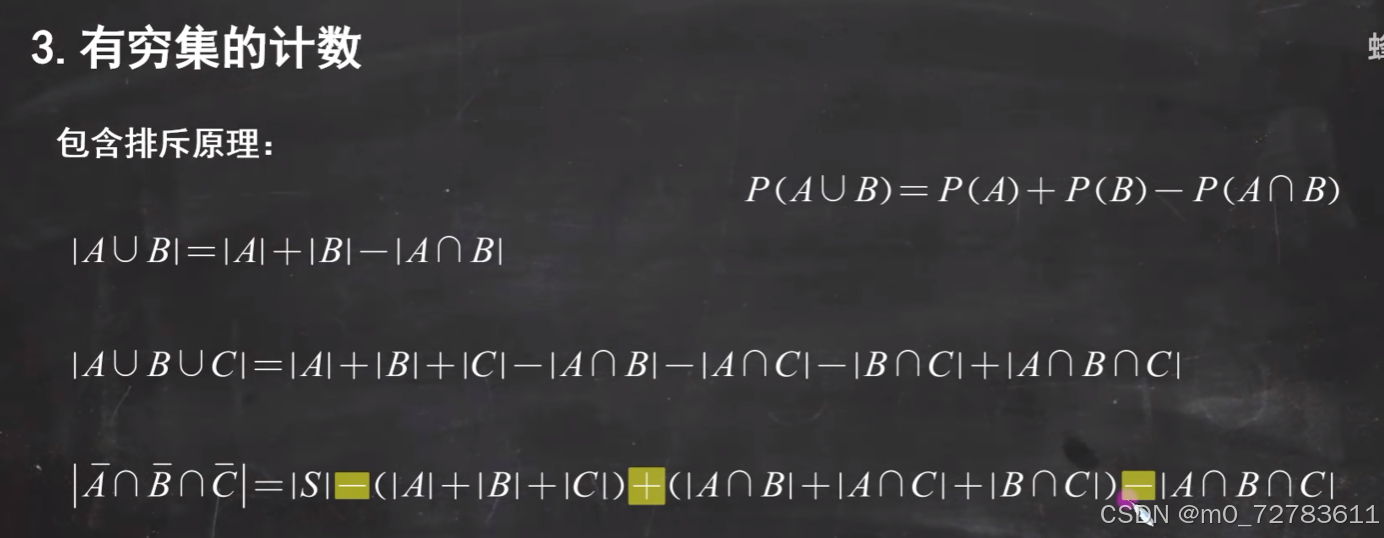 3. 有穷集的计数
蜂
包含排斥原理：
P(A∪B)=P(A)+P(B)−P(A∩B)
|A∪B|=|A|+|B|−|A∩B|
|A∪B∪C|=|A|+|B|+|C|−|A∩B|−|A∩C|−|B∩C|+|A∩B∩C|
|A̅∩B̅∩C̅|=|S|−(|A|+|B|+|C|)+(|A∩B|+|A∩C|+|B∩C|)−|A∩B∩C|
CSDN @m0_72783611